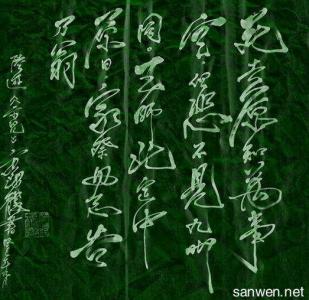 死去原知萬事
空但悲不見九州
同王師北定中
原日家祭毋忘告
乃翁
sanwen.net